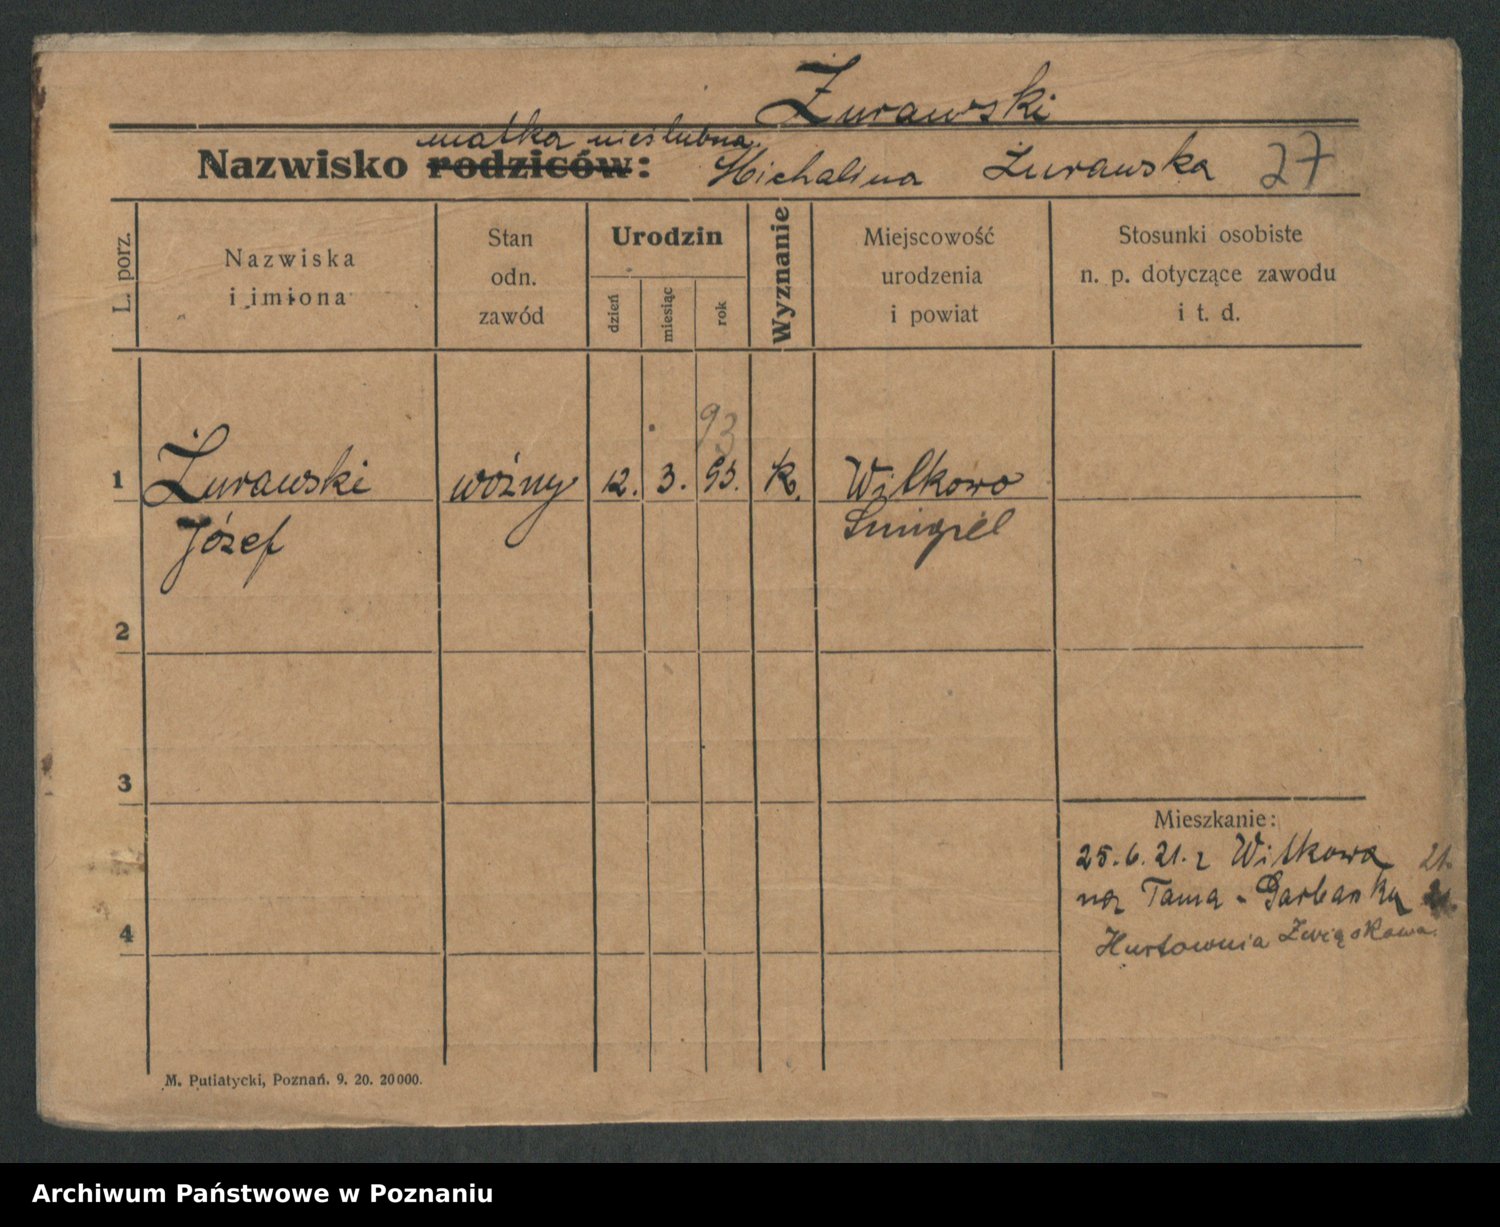 Żurawski
matka nieślubna
Nazwisko rodziców: Michalina Żurawska 27
L. porz.
Nazwiska
i imiona
Stan
odn.
zawód
Urodzin
dzień
miesiąc
rok
Wyznanie
Miejscowość
urodzenia
i powiat
Stosunki osobiste
n. p. dotyczące zawodu
i t. d.
93
1 Żurawski woźny 12. 3. 93. k. Wilkowo
Józef Śmigiel
2
3
Mieszkanie:
25.6.21. z Wilkowa 21.
na Tama-Garbarska
4
Hurtownia Związkowa.
M. Putiatycki, Poznań. 9. 20. 20000.
Archiwum Państwowe w Poznaniu